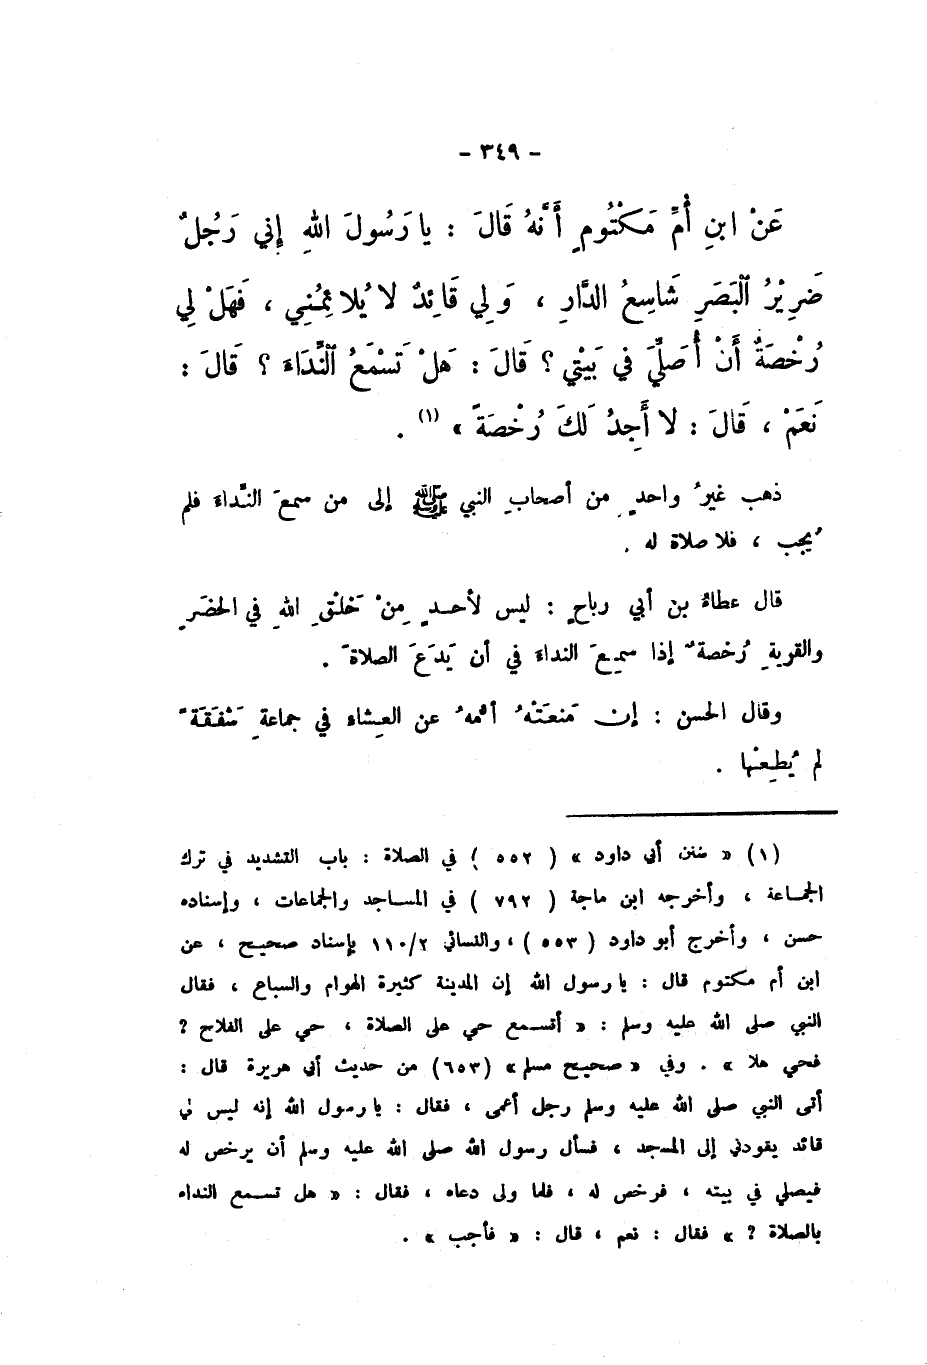 - ٣٤٩ -
عَنْ ابنِ أُمِّ مَكْتُومٍ أَنَّهُ قَالَ : يا رَسُولَ اللهِ إِني رَجُلٌ
ضَرِيْرُ ٱلْبَصَرِ شَاسِعُ الدَّارِ ، وَلِي قَائِدٌ لا يُلائِمُنِي ، فَهَلْ لِي
رُخْصَةٌ أَنْ أُصَلِّيَ فِي بَيْتِي ؟ قَالَ : هَلْ تَسْمَعُ ٱلنِّدَاءَ ؟ قَالَ :
نَعَمْ ، قَالَ : لا أَجِدُ لَكَ رُخْصَةً » (١) .
ذهب غيرُ واحدٍ من أصحابِ النبي ﷺ إلى من سمعَ النِّداءَ فلم
يُجِب ، فلا صلاة له .
قال عطاءُ بن أبي رباحٍ : ليس لأحدٍ مِنْ خَلْقِ اللهِ في الحضَرِ
والقريةِ رُخصةٌ إذا سمِعَ النداءَ في أن يَدَعَ الصلاةَ .
وقال الحسن : إن مَنعَتْهُ أمُّهُ عن العِشاءِ في جماعةٍ شَفَقَةً
لم يُطِعْها .
(١) « سنن أبي داود » ( ٥٥٢ ) في الصلاة : باب التشديد في ترك
الجماعة ، وأخرجه ابن ماجة ( ٧٩٢ ) في المساجد والجماعات ، وإسناده
حسن ، وأخرج أبو داود ( ٥٥٣ ) ، والنسائي ١١٠/٢ بإسناد صحيح ، عن
ابن أم مكتوم قال : يا رسول الله إن المدينة كثيرة الهوام والسباع ، فقال
النبي صلى الله عليه وسلم : « أتسمع حي على الصلاة ، حي على الفلاح ?
فحي هلا » . وفي « صحيح مسلم » (٦٥٣) من حديث أبي هريرة قال :
أتى النبي صلى الله عليه وسلم رجل أعمى ، فقال : يا رسول الله إنه ليس لي
قائد يقودني إلى المسجد ، فسأل رسول الله صلى الله عليه وسلم أن يرخص له
فيصلي في بيته ، فرخص له ، فلما ولى دعاه ، فقال : « هل تسمع النداء
بالصلاة ? » فقال : نعم ، قال : « فأجب » .